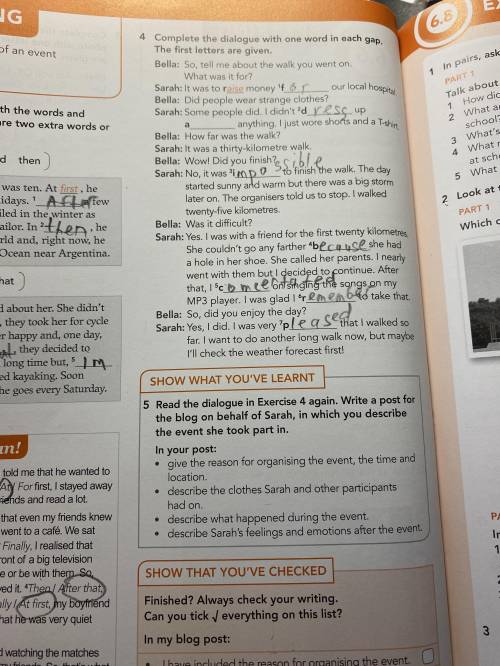 NG
of an event
th the words and
are two extra words or
d then
was ten. At first, he
lidays. After few
iled in the winter as
ailor. In ² then, he
rld and, right now, he
Ocean near Argentina.
hat
d about her. She didn't
, they took her for cycle
er happy and, one day,
they decided to
long time but, ⁵ Im
ed kayaking. Soon
he goes every Saturday.
an!
told me that he wanted to
At / For first, I stayed away
riends and read a lot.
that even my friends knew
went to a café. We sat
Finally, I realised that
ront of a big television
e or be with them. So,
yed it. ⁴Then / After that,
ally / At first, my boyfriend
hat he was very quiet
d watching the matches
4 Complete the dialogue with one word in each gap.
The first letters are given.
Bella: So, tell me about the walk you went on.
What was it for?
Sarah: It was to raise money ¹for our local hospital.
Bella: Did people wear strange clothes?
Sarah: Some people did. I didn't ²dress up
a________ anything. I just wore shorts and a T-shirt.
Bella: How far was the walk?
Sarah: It was a thirty-kilometre walk.
Bella: Wow! Did you finish?
Sarah: No, it was ³impossible to finish the walk. The day
started sunny and warm but there was a big storm
later on. The organisers told us to stop. I walked
twenty-five kilometres.
Bella: Was it difficult?
Sarah: Yes. I was with a friend for the first twenty kilometres.
She couldn't go any farther ⁴because she had
a hole in her shoe. She called her parents. I nearly
went with them but I decided to continue. After
that, I ⁵comcentrated on singing the songs on my
MP3 player. I was glad I ⁶remember to take that.
Bella: So, did you enjoy the day?
Sarah: Yes, I did. I was very ⁷pleased that I walked so
far. I want to do another long walk now, but maybe
I'll check the weather forecast first!
SHOW WHAT YOU'VE LEARNT
5 Read the dialogue in Exercise 4 again. Write a post for
the blog on behalf of Sarah, in which you describe
the event she took part in.
In your post:
• give the reason for organising the event, the time and
location.
• describe the clothes Sarah and other participants
had on.
• describe what happened during the event.
• describe Sarah's feelings and emotions after the event.
SHOW THAT YOU'VE CHECKED
Finished? Always check your writing.
Can you tick √ everything on this list?
In my blog post:
• I have included the reason for organising the event.
6.8
1 In pairs, ask
PART 1
Talk about
1 How did
2 What a
school?
3 What's
4 What
at sch
5 What
2 Look at
PART 1
Which
In
1
3